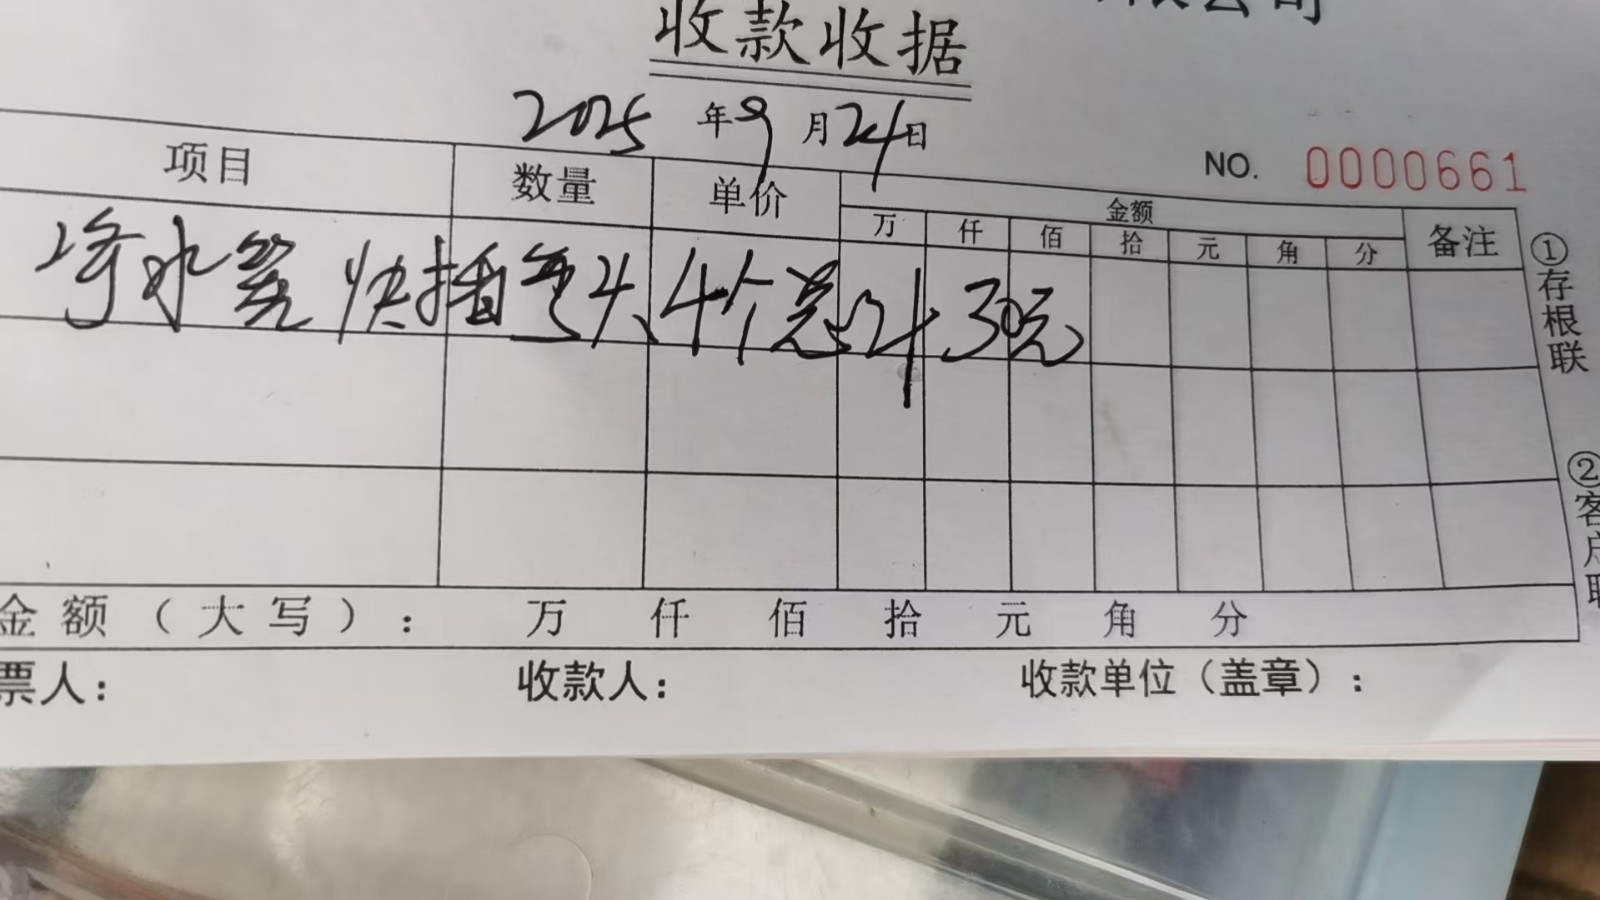 限公司
收款收据
2025年9月24日
NO. 0000661
项目 数量 单价 金额 备注
万 仟 佰 拾 元 角 分
净水器 快插弯头 4个总计 30元
①存根联
②客户联
金额(大写): 万 仟 佰 拾 元 角 分
票人: 收款人: 收款单位(盖章):